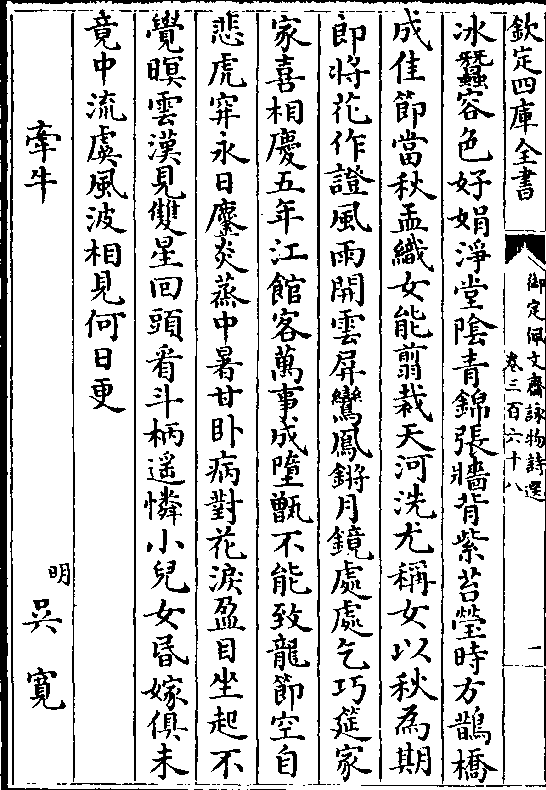 欽定四庫全書
御定佩文齋詠物詩選
卷三百六十八
一
冰蠶容色好娟淨堂陰青錦張牆背紫苔瑩時方鵲橋
成佳節當秋孟織女能翦裁天河洗尤稱女以秋為期
即將花作證風雨開雲屏鸞鳳鏘月鏡處處乞巧筵家
家喜相慶五年江館客萬事成墮甑不能致龍節空自
悲虎穽永日麈炎蒸中暑甘臥病對花淚盈目坐起不
覺暝雲漢見雙星回頭看斗柄遙憐小兒女昏嫁俱未
竟中流虞風波相見何日更
牽牛
明
吳寬